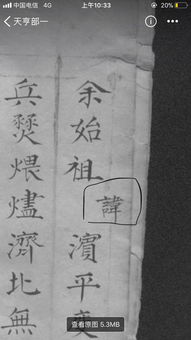 中国电信 4G
上午10:33
20%
天亨部一
余始祖諱濵平奕
兵燹煨燼濟北無
查看原图 5.3MB